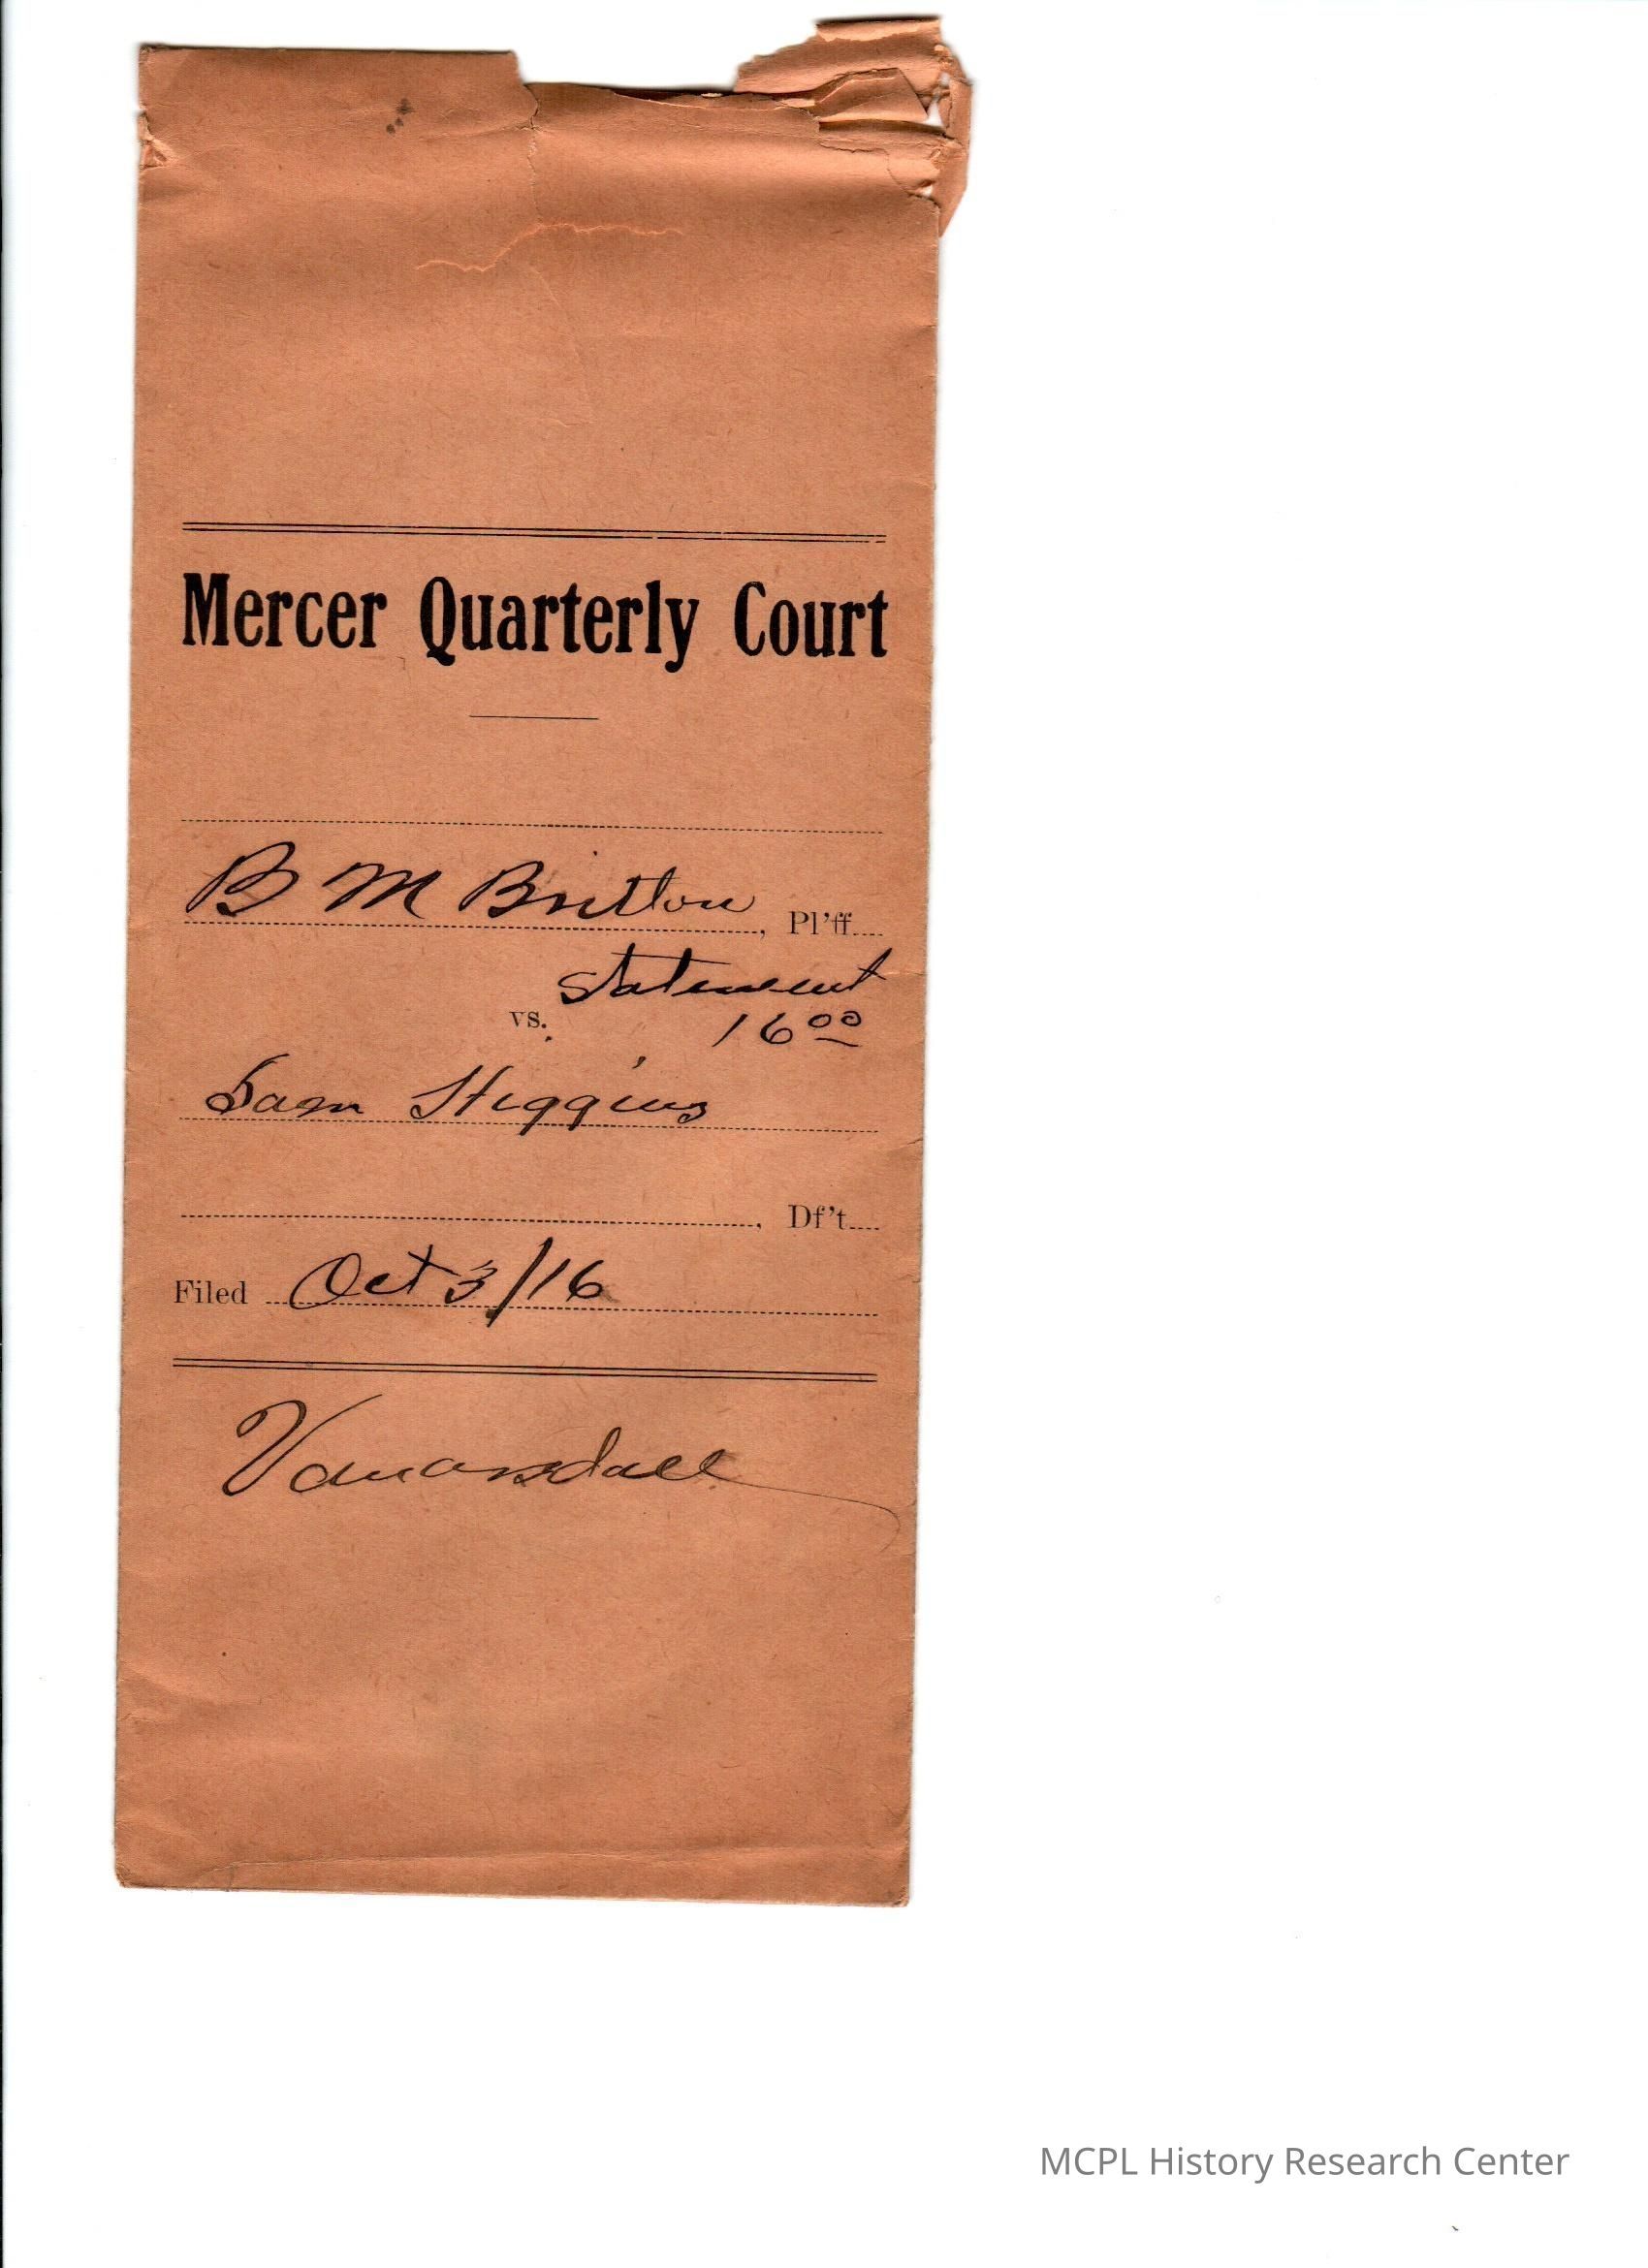 Mercer Quarterly Court
B M Britton, Pl'ff
Statement
vs. 16 00
Sam Higgins
, Df't
Filed Oct 3/16
Vanarsdall
MCPL History Research Center